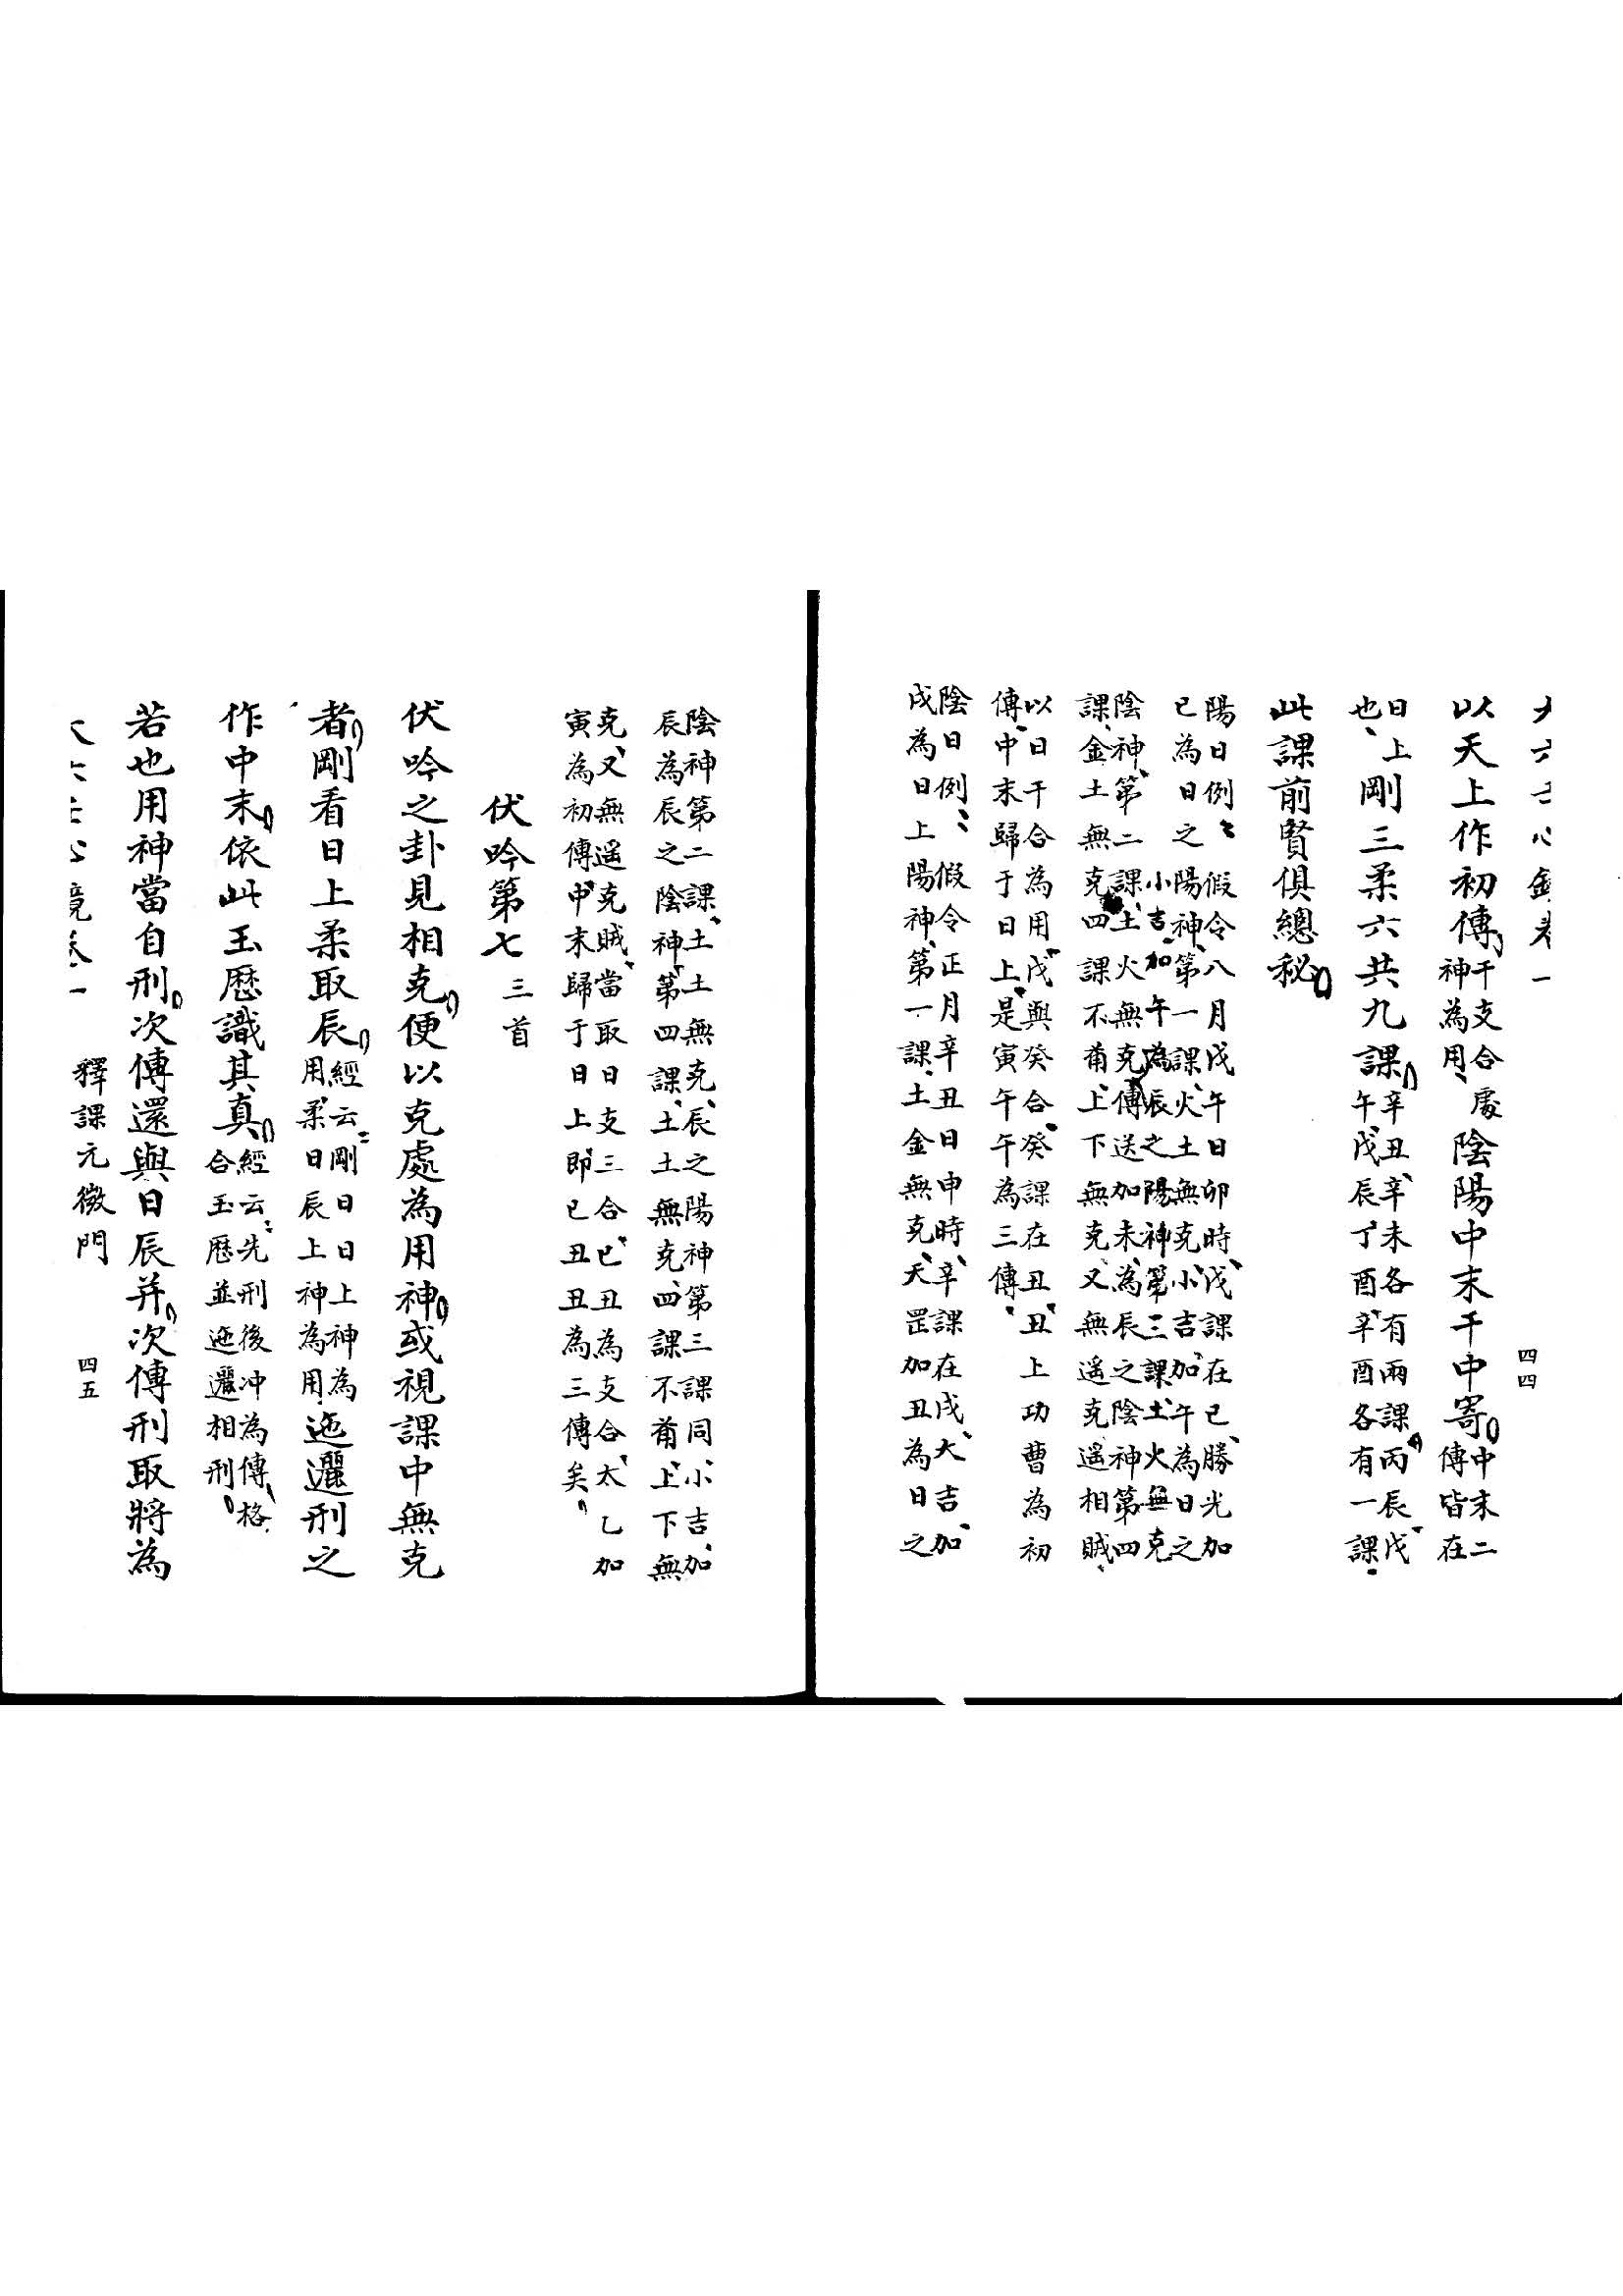 大六壬心鏡卷一　四四
以天上作初傳、干支合處神為用、陰陽中末干中寄中末二傳皆在
日上也、剛三柔六共九課辛丑、辛未各有兩課丙辰、戊午、戊辰、丁酉、辛酉各有一課.
此課前賢俱總秘
陽日例、假令八月戊午日卯時、戊課在巳、勝光加
巳為日之陽神、第一課、火土無克、小吉加午為日之
陰神、第二課、土火無克、小吉加午為辰之陽神第三課、土火無克傳送加未、為辰之陰神第四
課、金土無克四課不備、上下無克、又無遙克遙相賊、
以日干合為用、戊與癸合、癸課在丑、丑上功曹為初
傳、中末歸于日上、是寅午午為三傳、
陰日例、假令正月辛丑日申時、辛課在戌、大吉加
戌為日上陽神、第一課、土金無克、天罡加丑為日之
陰神第二課、土土無克、辰之陽神第三課同、小吉加
辰為辰之陰神、第四課、土土無克、四課不備、上下無
克、又無遙克賊、當取日支三合、巳丑為支合、太乙加
寅為初傳、中末歸于日上、即巳丑丑為三傳矣、
伏吟第七三首
伏吟之卦見相克、便以克處為用神、或視課中無克
者、剛看日上柔取辰、經云、剛日日上神為用、柔日辰上神為用、迤邐刑之
作中末、依此玉歷識其真、經云、先刑後冲為傳、格合玉歷並迤邐相刑、
若也用神當自刑、次傳還與日辰并、次傳刑取將為
大六壬心鏡卷一　釋課元微門　四五